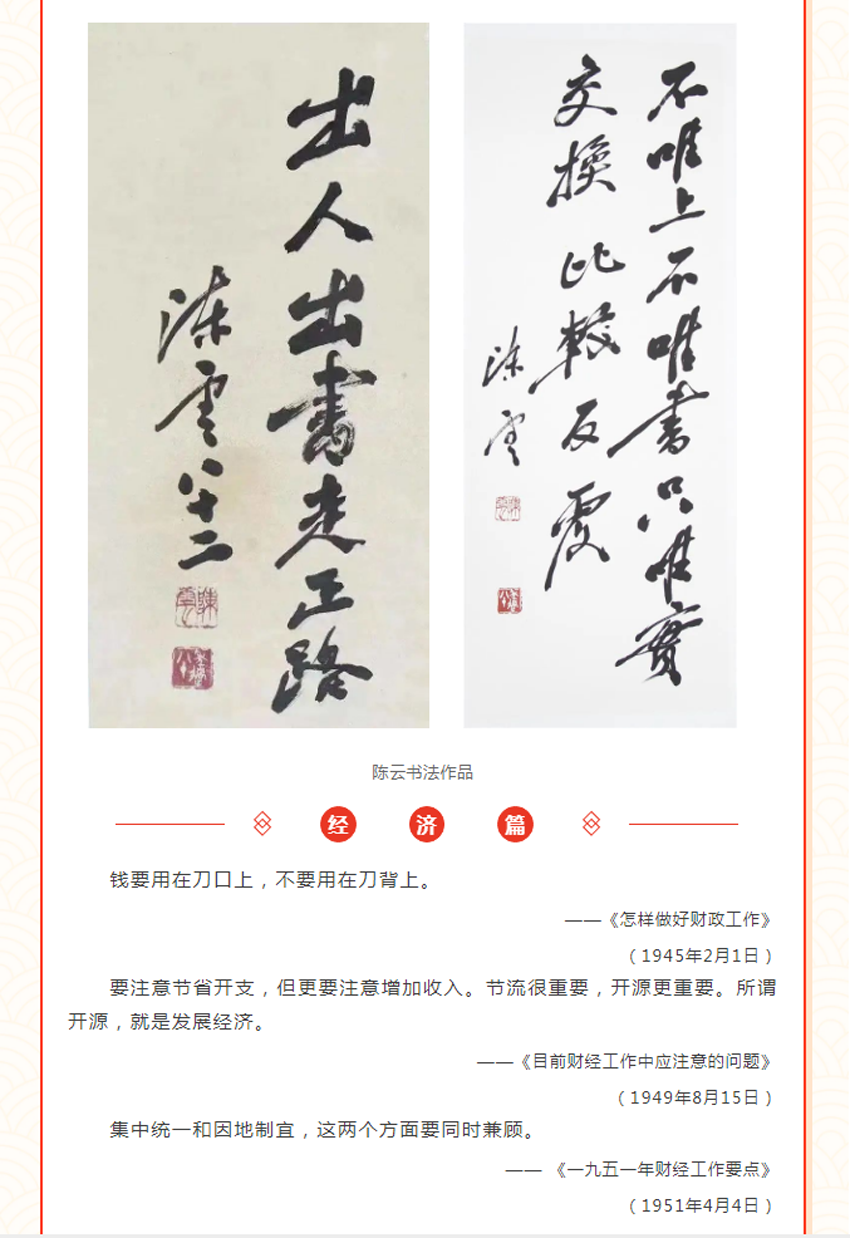 出人出書走正路
陈雲八十二
不唯上不唯書只唯實
交換比較反覆
陈雲
陈云书法作品
经济篇
钱要用在刀口上，不要用在刀背上。
——《怎样做好财政工作》
（1945年2月1日）
要注意节省开支，但更要注意增加收入。节流很重要，开源更重要。所谓
开源，就是发展经济。
——《目前财经工作中应注意的问题》
（1949年8月15日）
集中统一和因地制宜，这两个方面要同时兼顾。
—— 《一九五一年财经工作要点》
（1951年4月4日）